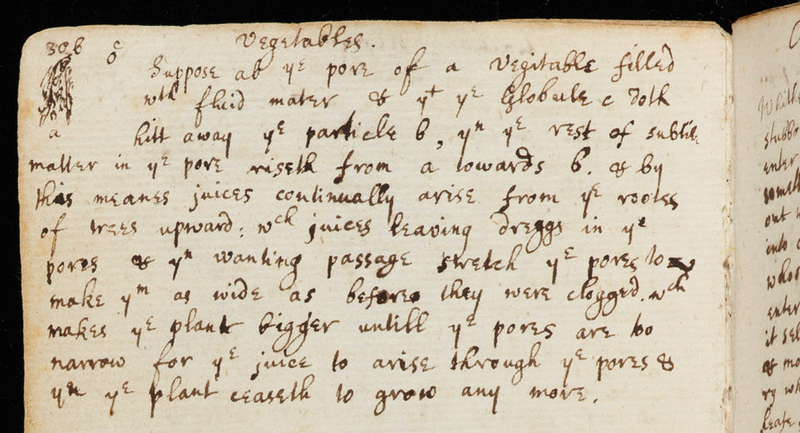 306 c Vegetables.
Suppose ab yᵉ pore of a Vegitable filled
wᵗʰ fluid mater & yᵗ yᵉ Globule c doth
a hitt away yᵉ particle b, yⁿ yᵉ rest of subtile
matter in yᵉ pore riseth from a towards b. & by
this meanes juices continually arise from yᵉ rootes
of trees upward; wᶜʰ juices leaving dreggs in yᵉ
pores & yⁿ wanting passage stretch yᵉ pores to
make yᵐ as wide as before they were clogged. wᶜʰ
makes yᵉ plant bigger untill yᵉ pores are too
narrow for yᵉ juice to arise through yᵉ pores &
yⁿ yᵉ plant ceaseth to grow any more.